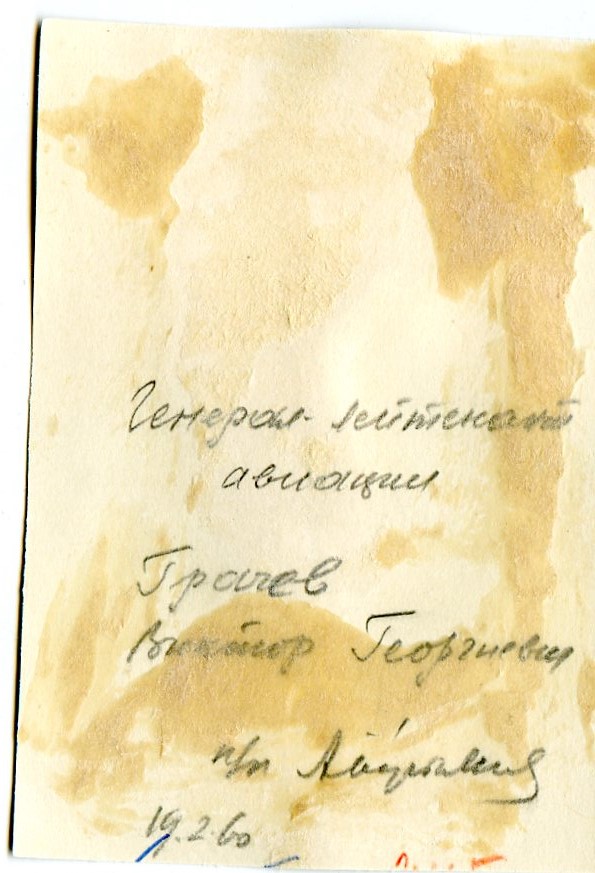 Генерал-лейтенант
авиации
Грачев
Виктор Георгиевич
п/п
19.2.60